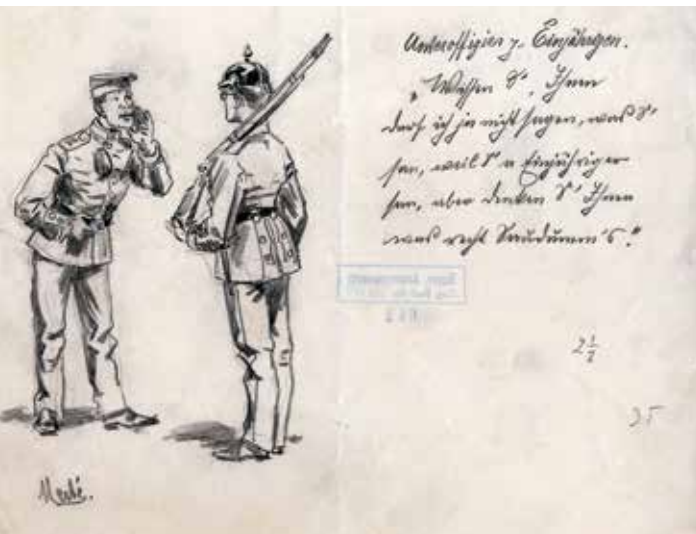 Unteroffizier z. Einjährigen.
„Wissen S', Ihnen
darf ich ja nicht sagen, was S'
san, weil S' a Einjähriger
san, aber denken S' Ihnen
was recht Saudumm's."
2 1/2
35